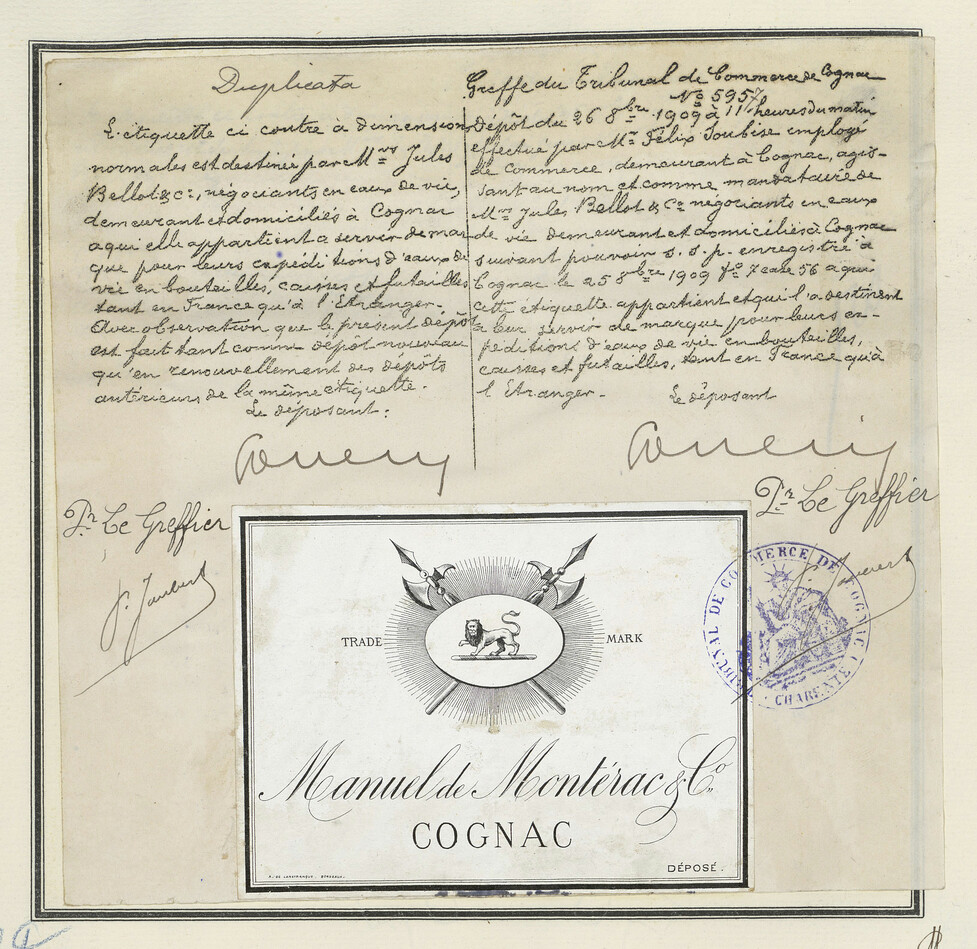 Duplicata
L'étiquette ci contre à dimension
normales est destinée par Mrs Jules
Bellot & Cie, négociants en eaux de vie,
demeurant et domiciliés à Cognac
a qui elle appartient a servir de mar
que pour leurs expéditions d'eaux de
vie en bouteilles, caisses et futailles
tant en France qu'à l'Etranger.
Avec observation que le présent dépôt
est fait tant comme dépôt nouveau
qu'en renouvellement des dépôts
antérieurs de la même étiquette.
Le déposant:
Pr Le Greffier
Greffe du Tribunal de Commerce de Cognac
No 5957
Dépôt du 26 8bre 1909 à 11 heures du matin
effectué par Mr Félix Soubise employé
de commerce, demeurant à Cognac, agis-
sant au nom et comme mandataire de
Mrs Jules Bellot & Co négociants en eaux
de vie demeurant et domiciliés à Cognac
suivant pouvoir s.s.p. enregistré à
Cognac le 25 8bre 1909 fo 7 case 56 a qui
cette étiquette appartient et qui l'a destinent
a leur servir de marque pour leurs ex-
péditions d'eaux de vie en bouteilles,
caisses et futailles, tant en France qu'à
l'Etranger.
Le déposant
Pr Le Greffier
TRIBUNAL DE COMMERCE DE COGNAC
CHARENTE
TRADE MARK
Manuel de Montérac & Co.
COGNAC
DÉPOSÉ.